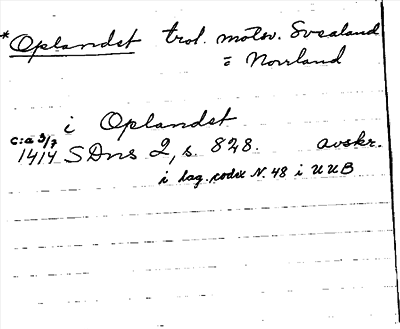 *Oplandet trol. motsv. Svealand
= Norrland
i Oplandet
c:a 3/7
1414 SDns 2, s. 828. avskr.
i lag. codex N. 48 i UUB